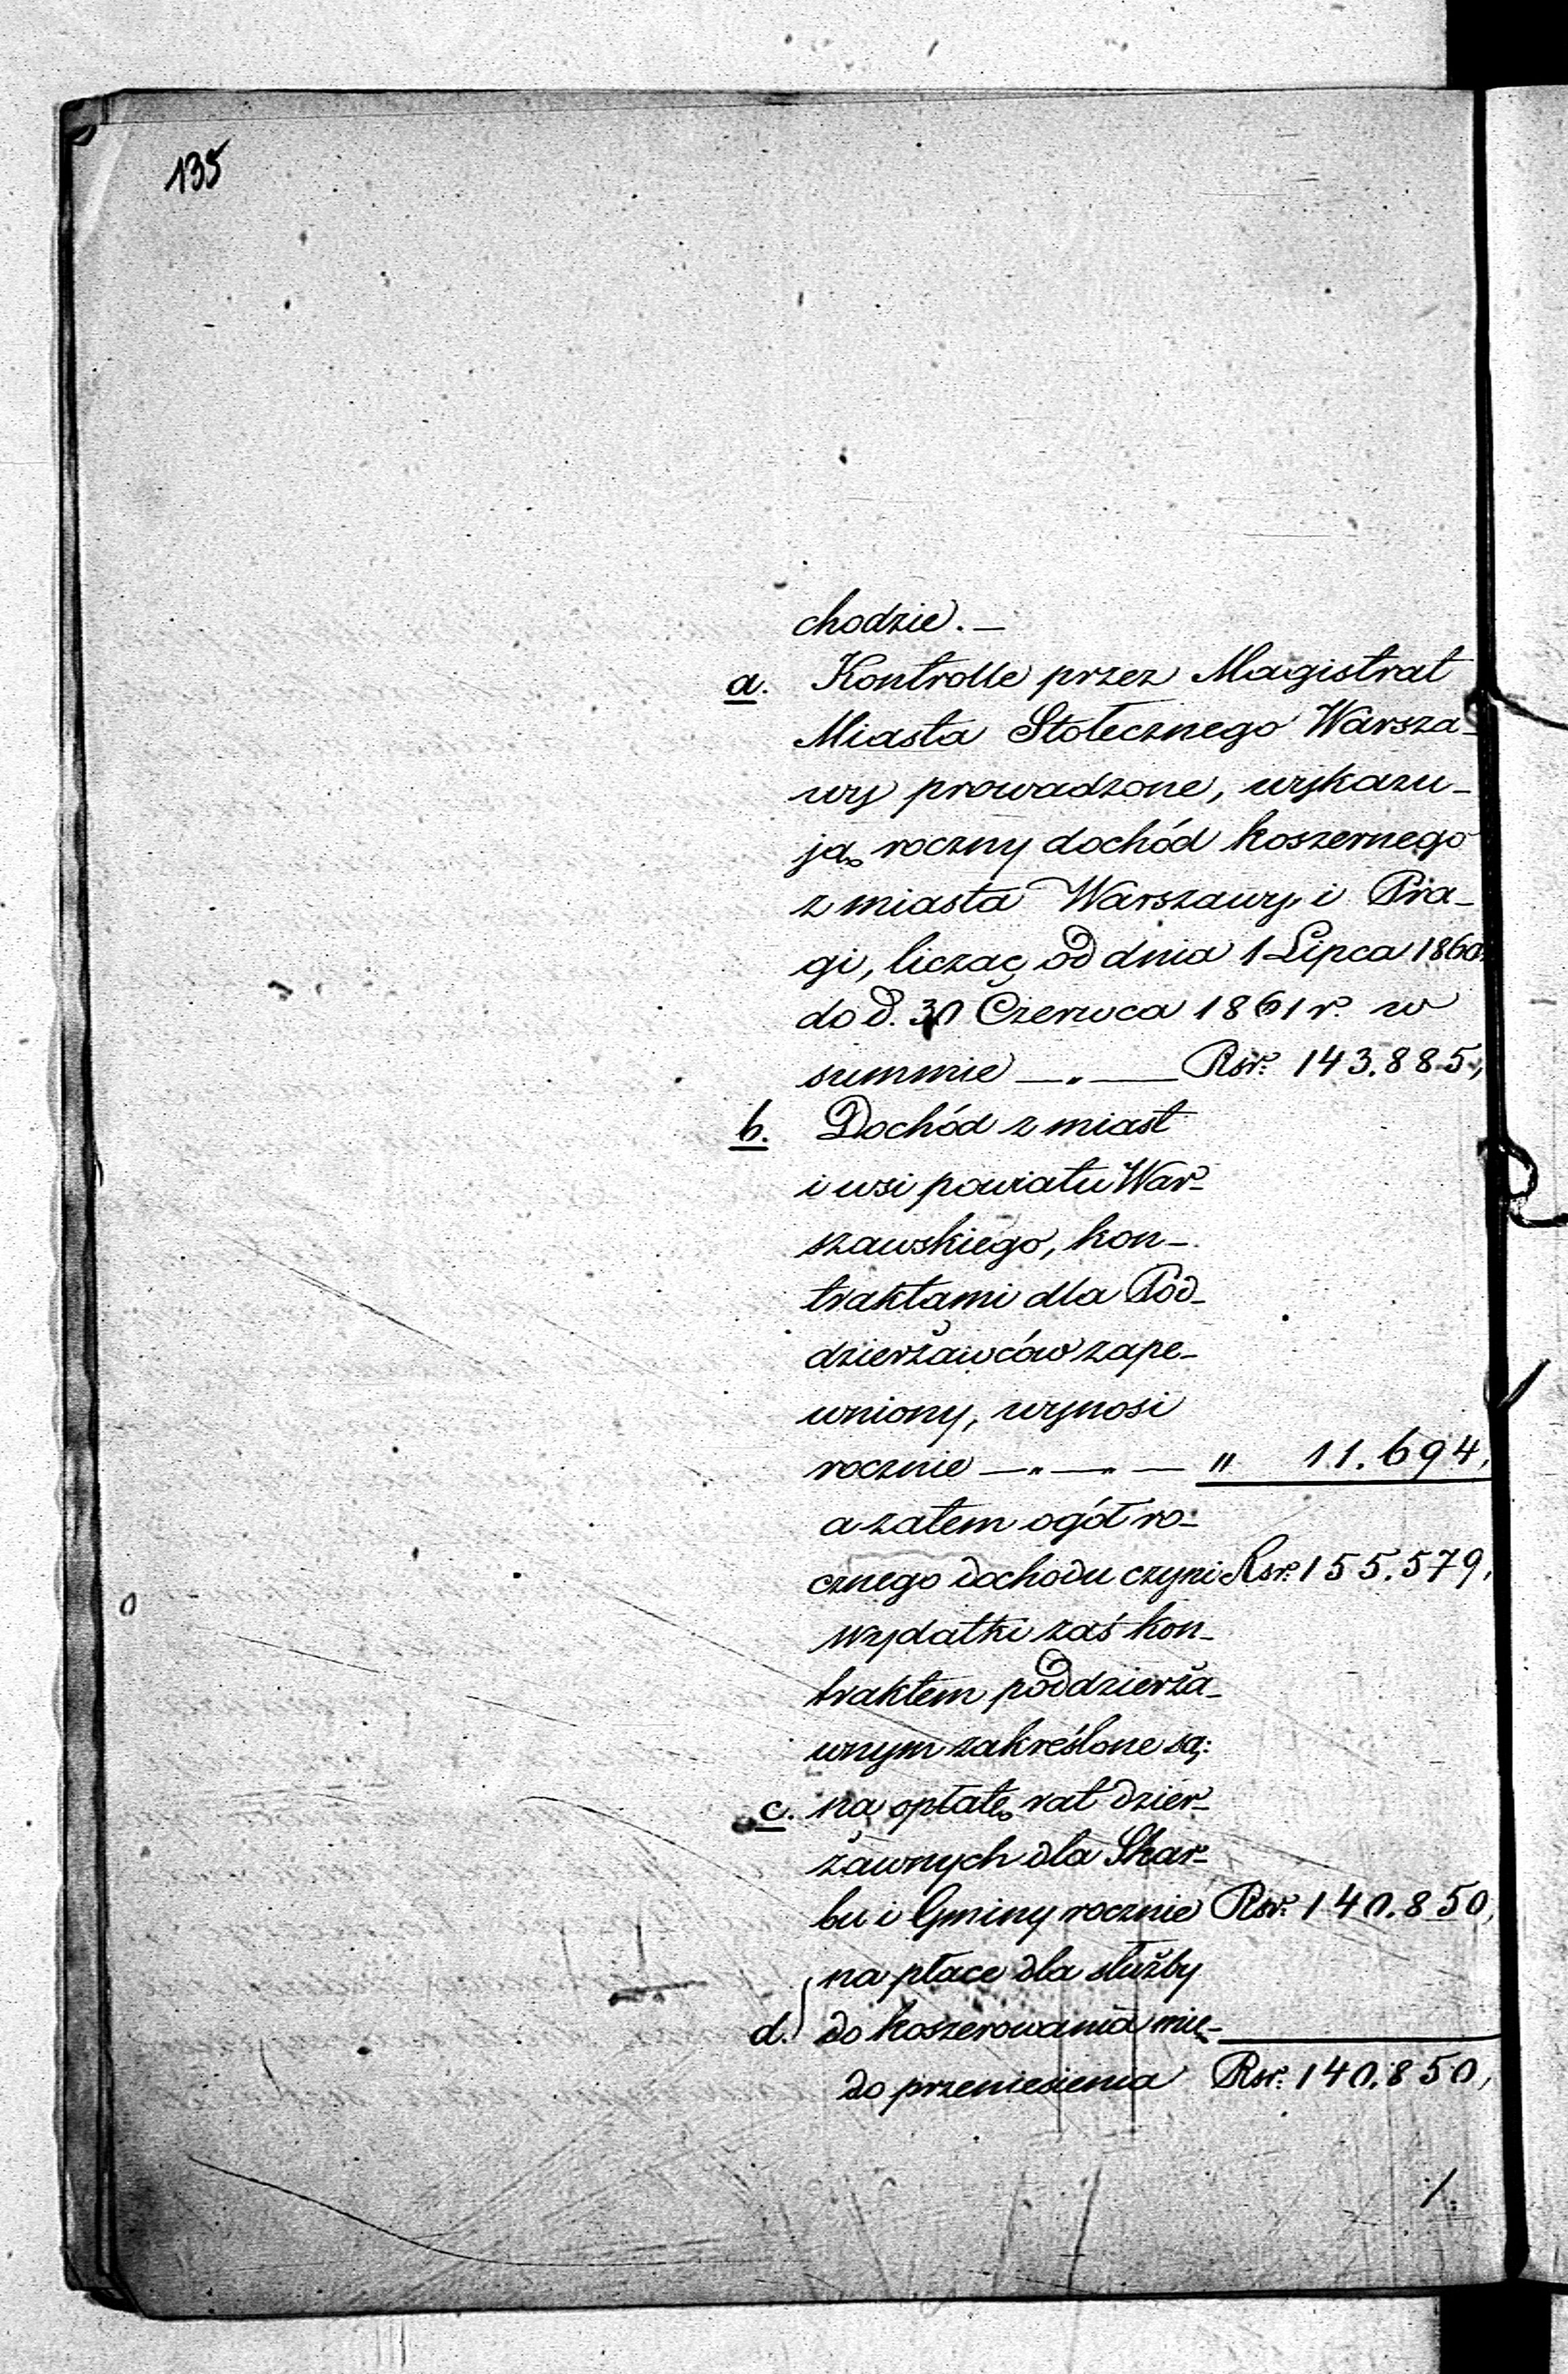 135
chodzie. —
a. Kontrolle przez Magistrat
Miasta Stołecznego Warsza-
wy prowadzone, wykazu-
ją roczny dochód koszernego
z miasta Warszawy i Pra-
gi, licząc od dnia 1 Lipca 1860
do d. 30 Czerwca 1861 r. w
summie —„— Rsr. 143.885,
b. Dochód z miast
i wsi powiatu War-
szawskiego, kon-
traktami dla Pod-
dzierżawców zape-
wniony, wynosi
rocznie —„—„— „ 11.694,
a zatem ogół ro-
cznego dochodu czyni Rsr. 155.579,
wydatki zaś kon-
traktem poddzierża-
wnym zakreślone są:
c. na opłatę rat dzier-
żawnych dla Skar-
bu i Gminy rocznie Rsr. 140.850,
na płace dla służby
d. do koszerowania mię-
do przeniesienia Rsr. 140.850,
./.